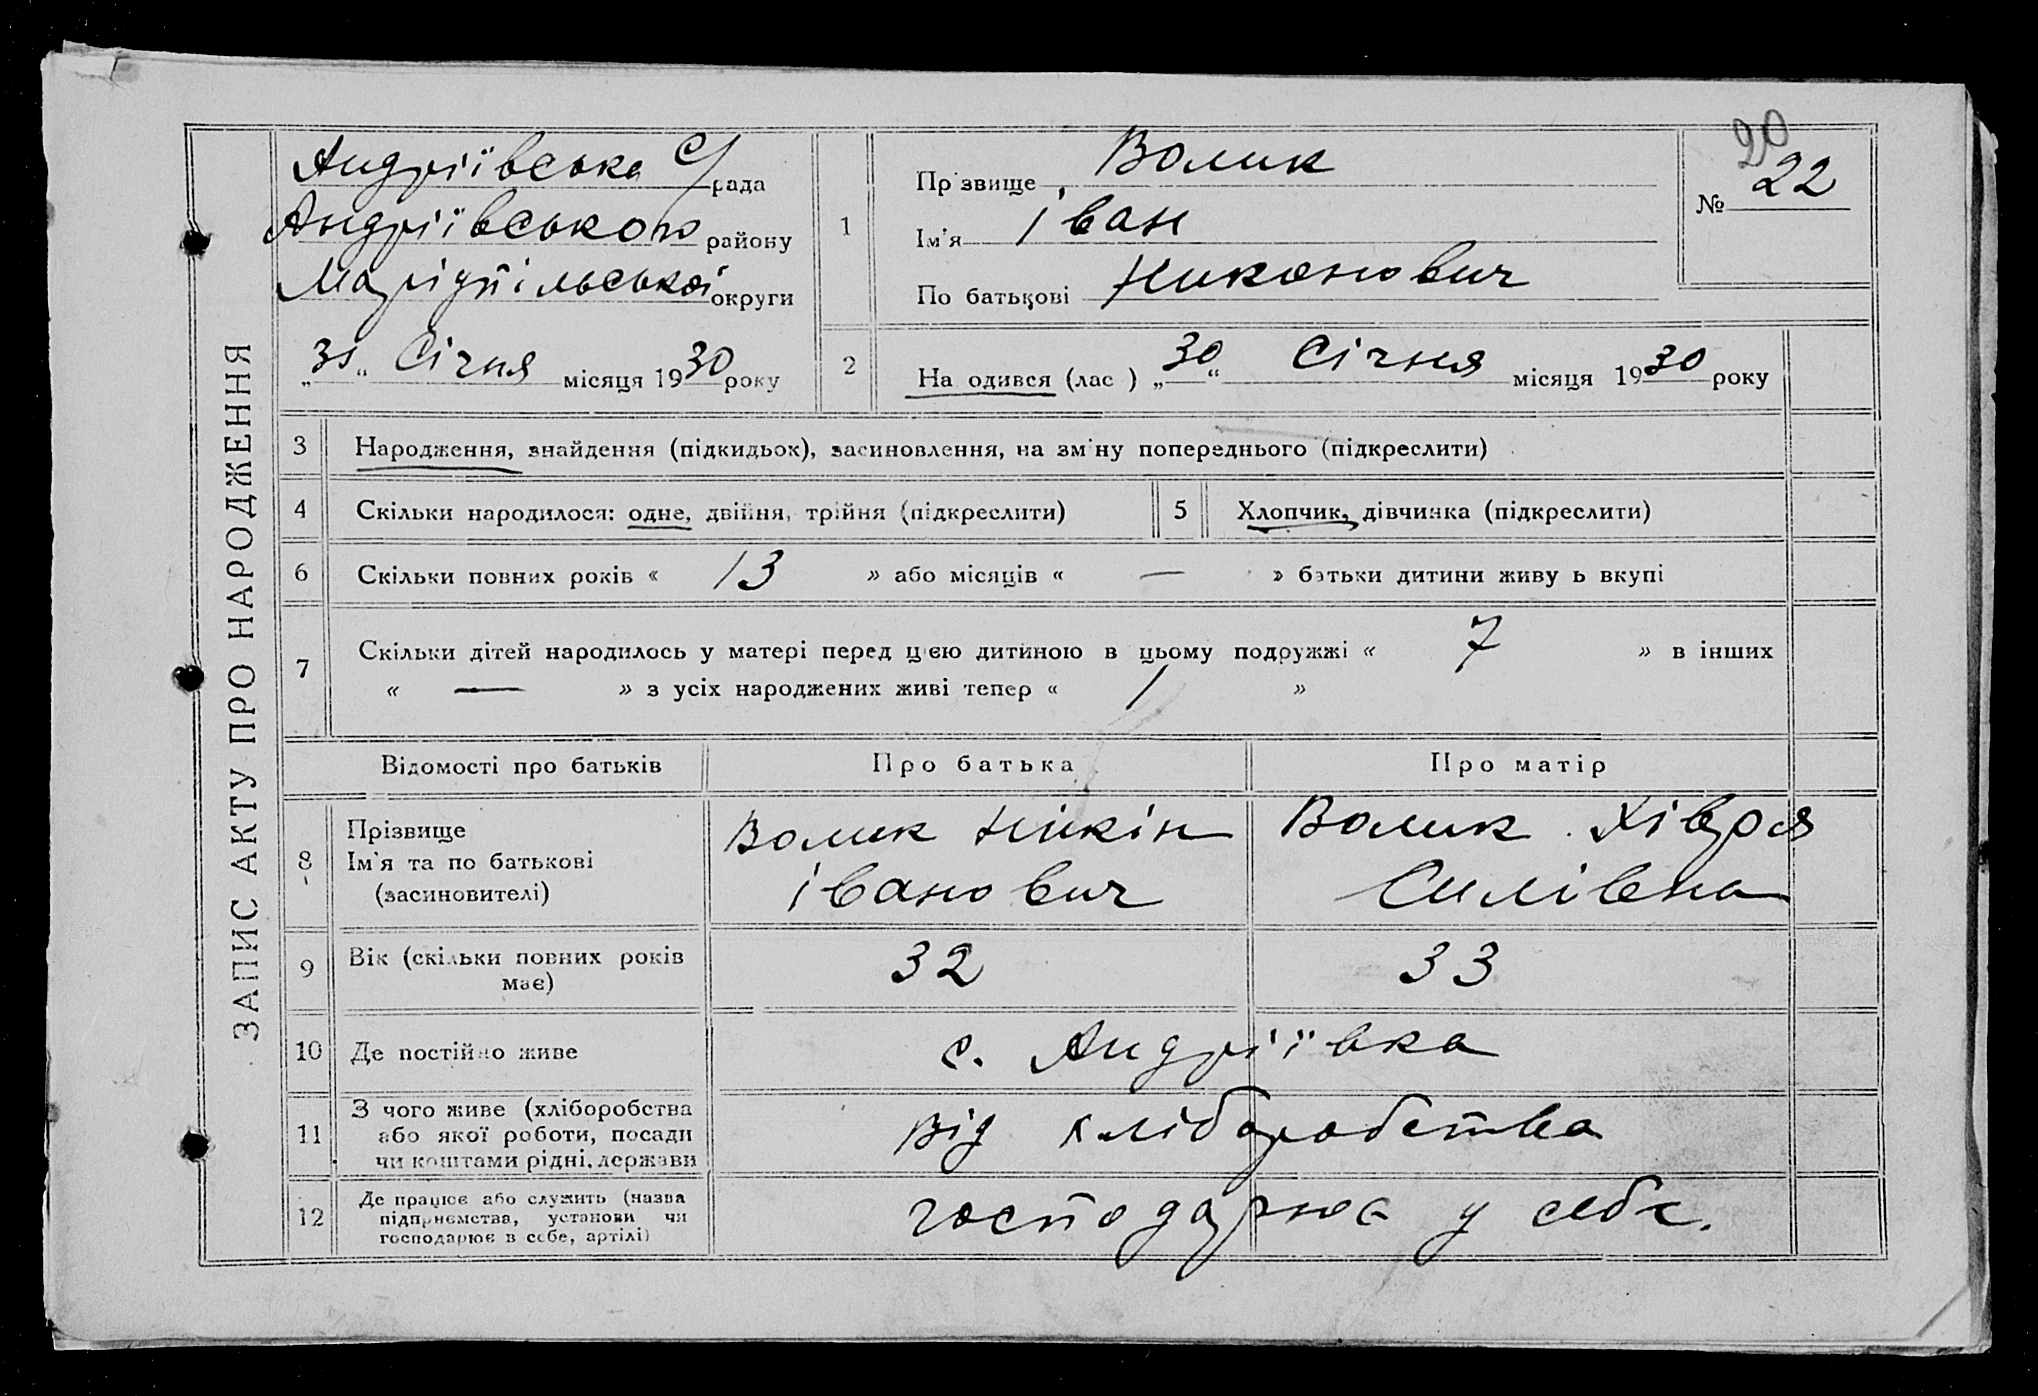 ЗАПИС АКТУ ПРО НАРОДЖЕННЯ
Андріївська С/рада
Андріївського району
Маріупільської округи
„31“ Січня місяця 1930 року
1
Прізвище Волик
Ім'я Іван
По батькові Никонович
20
№ 22
2
На одився (лас ) „30“ Січня місяця 1930 року
3 Народження, знайдення (підкидьок), засиновлення, на зміну попереднього (підкреслити)
4 Скільки народилося: одне, двійня, трійня (підкреслити)
5 Хлопчик, дівчинка (підкреслити)
6 Скільки повних років « 13 » або місяців « — » батьки дитини живу ь вкупі
7 Скільки дітей народилось у матері перед цією дитиною в цьому подружжі « 7 » в інших
« — » з усіх народжених живі тепер « 1 »
Відомості про батьків Про батька Про матір
8 Прізвище
Ім'я та по батькові
(засиновителі)
Волик Никін
Іванович
Волик Хівря
Силівна
9 Вік (скільки повних років
має)
32 33
10 Де постійно живе с. Андріївка
11 З чого живе (хліборобства
або якої роботи, посади
чи коштами рідні, держави
від хліборобства
12 Де працює або служить (назва
підприємства, установи чи
господарює в себе, артілі)
господарює у себе.